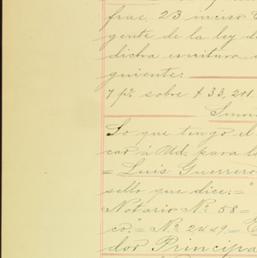 frac. 23 inciso
gente de la ley d
dicha escritura
guiente:
7 p% sobre $ 33,211
Lo que tengo el
car á Ud. para l
= Luis Guerrero
sello que dice: = "
Notario Nº 58 =
co: = Nº 2449 =
dor Principa